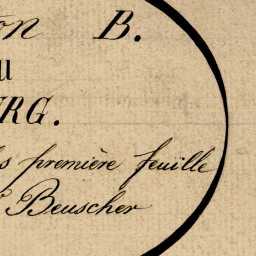 on B.
u
RG.
s première feuille
Beuscher